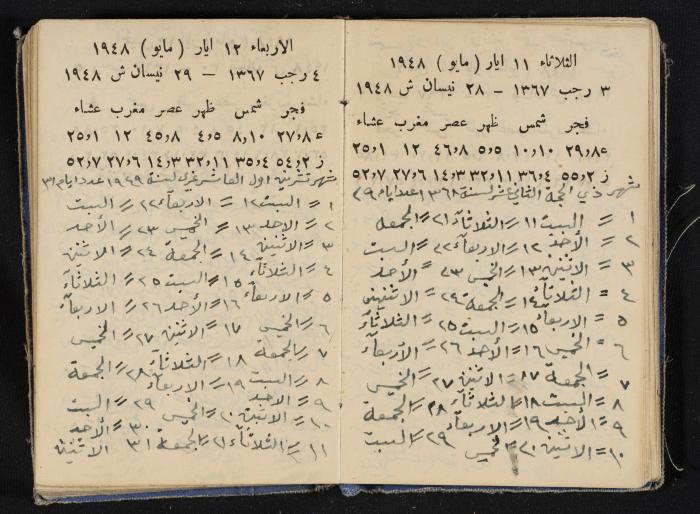 الثلاثاء ١١ ايار (مايو) ١٩٤٨
٣ رجب ١٣٦٧ – ٢٨ نيسان ش ١٩٤٨
فجر شمس ظهر عصر مغرب عشاء
ع ٢٩٫٨ ١٠٫١٠ ٥٫٥ ٤٦٫٨ ١٢ ٢٥٫١
ز ٥٥٫٢ ٣٦٫٤ ٣٢٫١١ ١٤٫٣ ٢٧٫٦ ٥٢٫٧
شهر ذي الحجة الثاني عشر لسنة ١٣٦٨ عدد ايام ٢٩
١ = السبت ١١ = الثلاثاء ٢١ = الجمعه
٢ = الأحد ١٢ = الاربعاء ٢٢ = السبت
٣ = الاثنين ١٣ = الخميس ٢٣ = الأحد
٤ = الثلاثاء ١٤ = الجمعة ٢٤ = الاثنين
٥ = الاربعاء ١٥ = السبت ٢٥ = الثلاثاء
٦ = الخميس ١٦ = الأحد ٢٦ = الاربعاء
٧ = الجمعة ١٧ = الاثنين ٢٧ = الخميس
٨ = السبت ١٨ = الثلاثاء ٢٨ = الجمعة
٩ = الأحد ١٩ = الاربعاء ٢٩ = السبت
١٠ = الاثنين ٢٠ = الخميس
الاربعاء ١٢ ايار (مايو) ١٩٤٨
٤ رجب ١٣٦٧ – ٢٩ نيسان ش ١٩٤٨
فجر شمس ظهر عصر مغرب عشاء
ع ٢٧٫٨ ٨٫١٠ ٤٫٥ ٤٥٫٨ ١٢ ٢٥٫١
ز ٥٤٫٢ ٣٥٫٤ ٣٢٫١١ ١٤٫٣ ٢٧٫٦ ٥٢٫٧
شهر تشرين اول العاشر غربي لسنة ١٩٤٩ عدد ايام ٣١
١ = السبت ١٢ = الاربعاء ٢٢ = السبت
٢ = الاحد ١٣ = الخميس ٢٣ = الأحد
٣ = الاثنين ١٤ = الجمعة ٢٤ = الاثنين
٤ = الثلاثاء ١٥ = السبت ٢٥ = الثلاثاء
٥ = الاربعاء ١٦ = الأحد ٢٦ = الاربعاء
٦ = الخميس ١٧ = الاثنين ٢٧ = الخميس
٧ = الجمعة ١٨ = الثلاثاء ٢٨ = الجمعة
٨ = السبت ١٩ = الاربعاء
٩ = الاحد ٢٠ = الخميس ٢٩ = السبت
١٠ = الاثنين ٣٠ = الأحد
١١ = الثلاثاء ٢١ = الجمعة ٣١ الاثنين